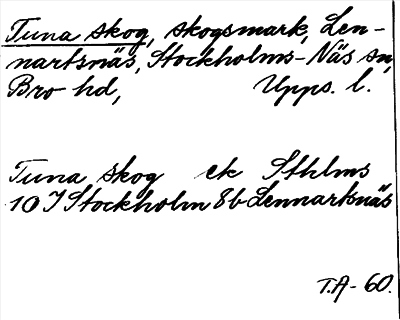 Tuna skog, skogsmark, Len-
nartsnäs, Stockholms-Näs sn,
Bro hd, Upps. l.
Tuna skog ek Sthlms
10 I Stockholm 8b Lennartsnäs
T.A-60.